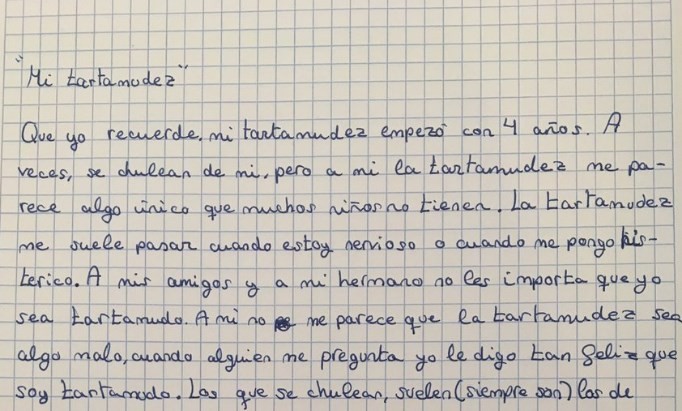 "Mi tartamudez"
Que yo recuerde, mi tartamudez empezó con 4 años. A
veces, se chulean de mi, pero a mi la tartamudez me pa-
rece algo único que muchos niños no tienen. La tartamudez
me suele pasar cuando estoy nervioso o cuando me pongo his-
terico. A mis amigos y a mi hermano no les importa que yo
sea tartamudo. A mi no me parece que la tartamudez sea
algo malo, cuando alguien me pregunta yo le digo tan feliz que
soy tartamudo. Los que se chulean, suelen (siempre son) los de